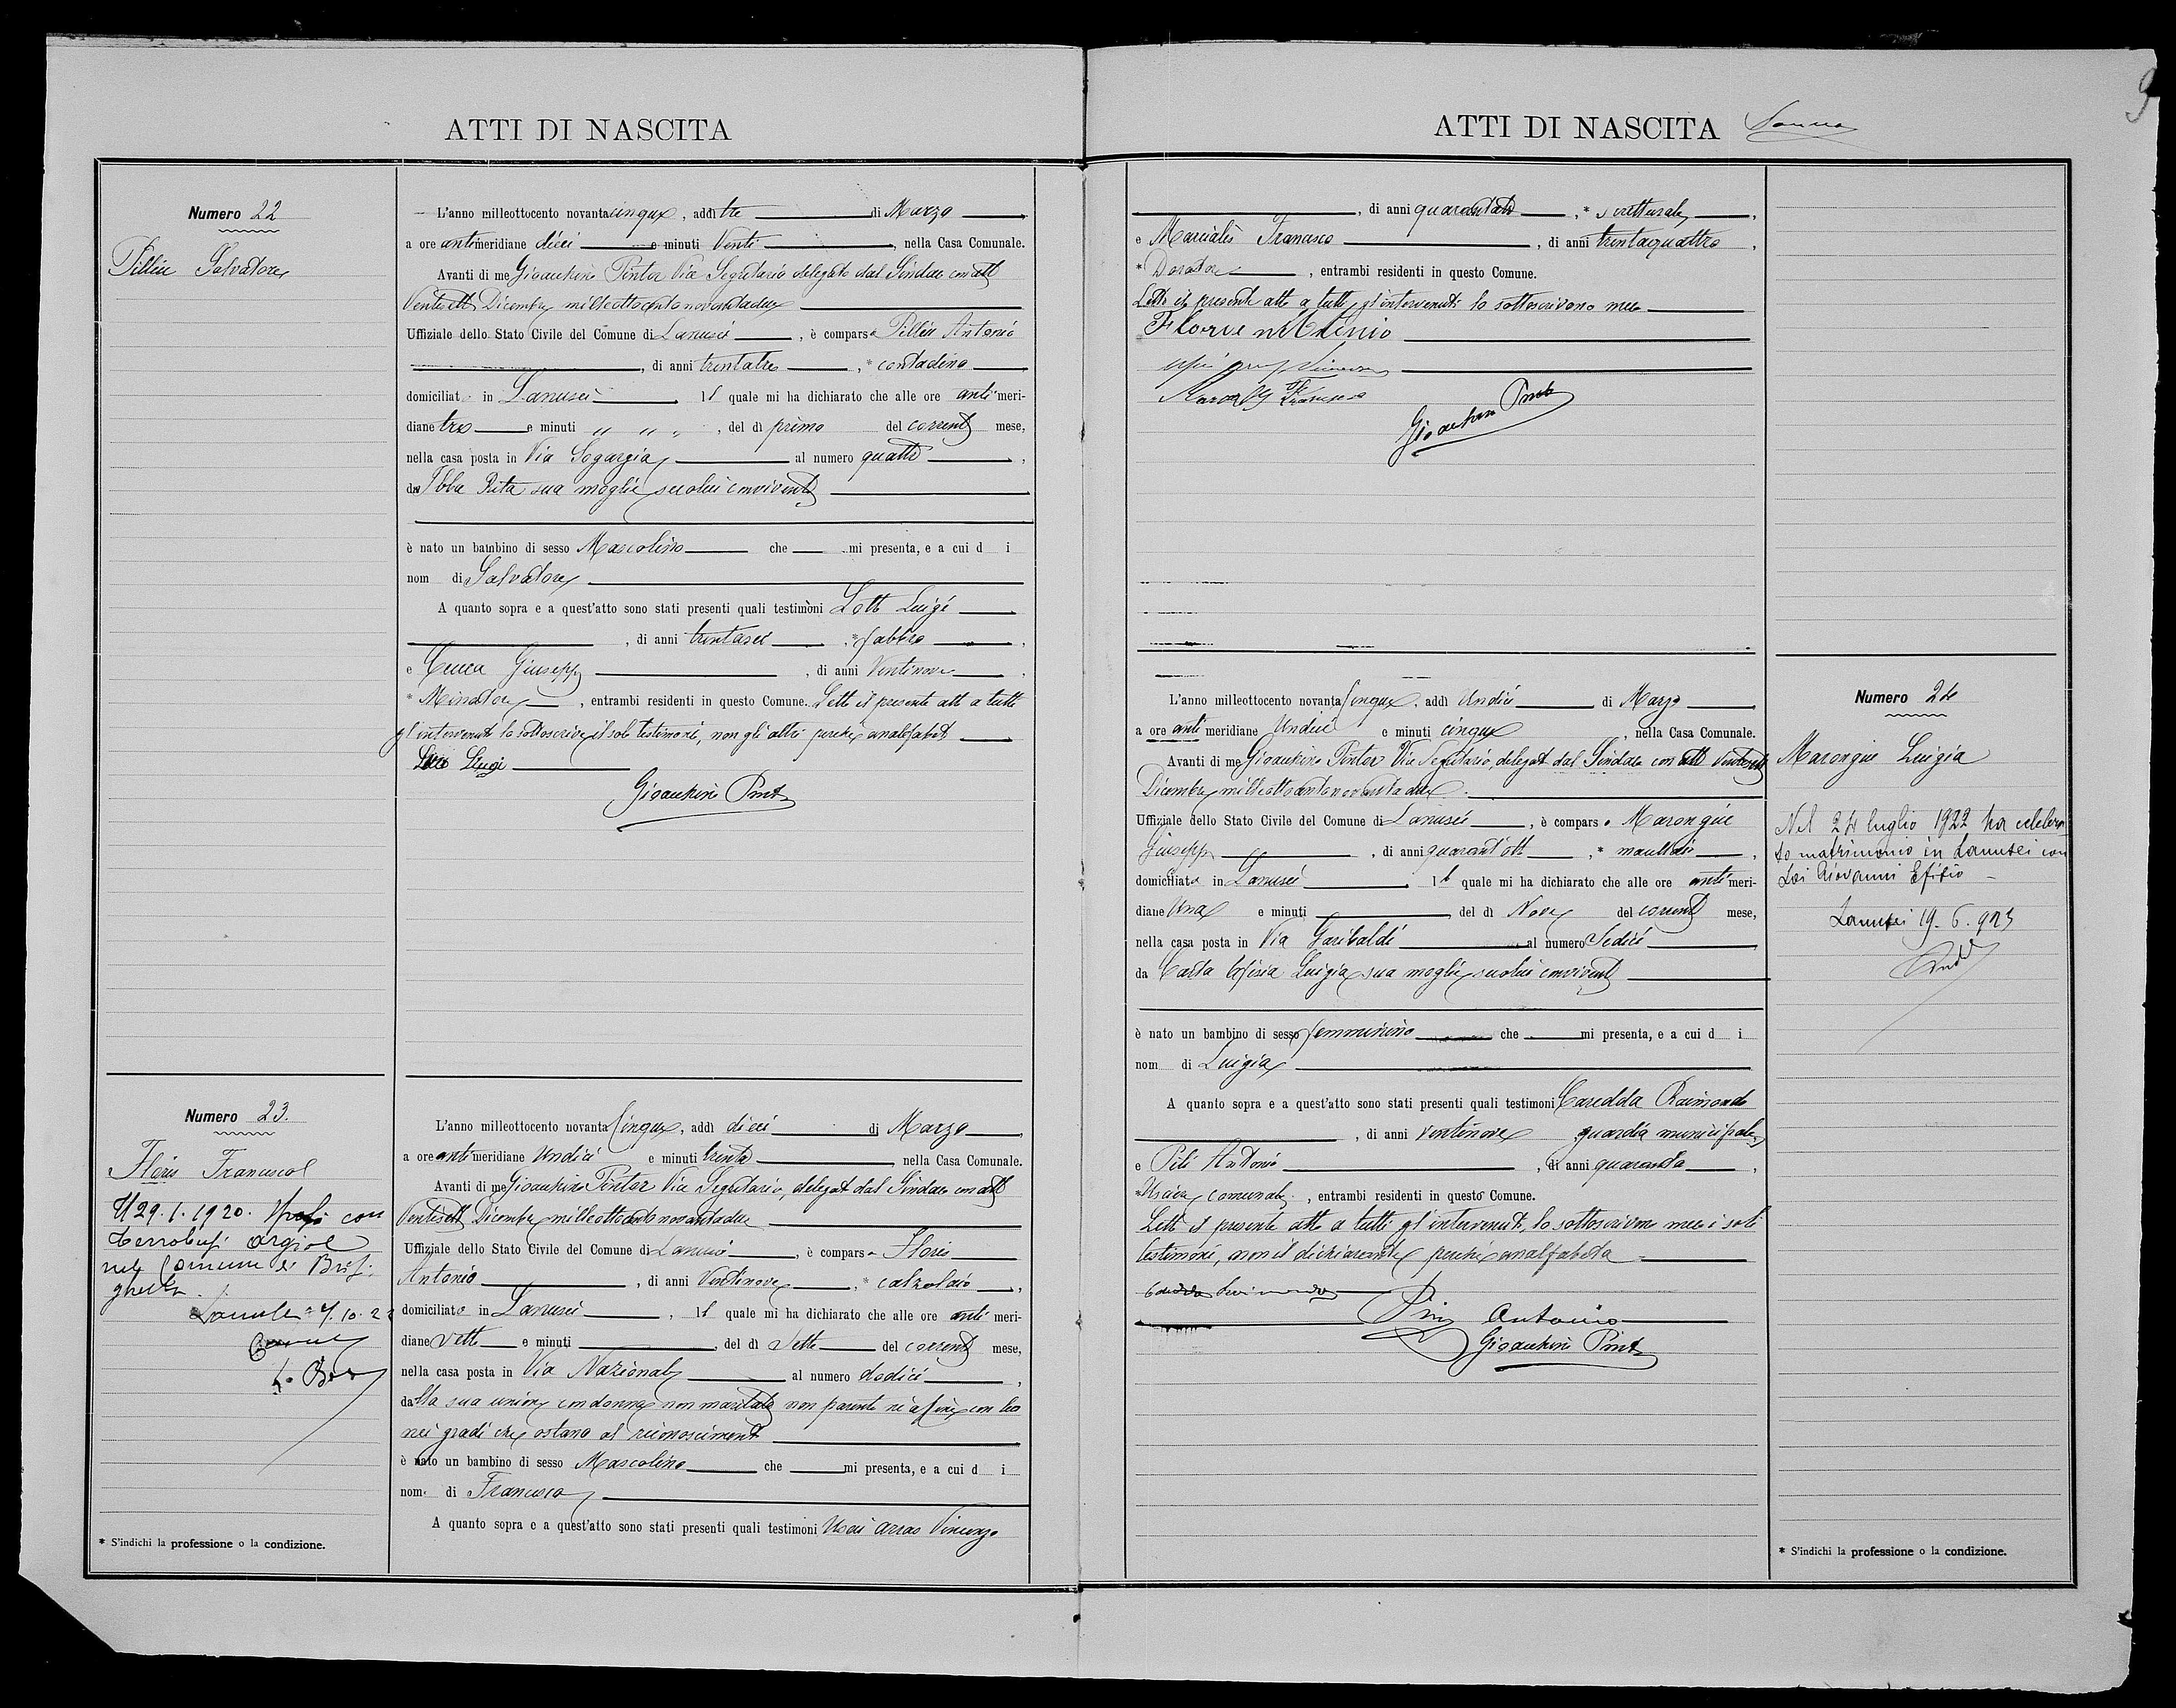 ATTI DI NASCITA
Numero 22
Pilliu Salvatore
L'anno milleottocento novantacinque, addì tre di Marzo
a ore antimeridiane dieci e minuti Venti, nella Casa Comunale.
Avanti di me Gioachino Pintor Vice Segretario delegato dal Sindaco con atto
Ventisette Dicembre milleottocentonovantadue
Uffiziale dello Stato Civile del Comune di Lanusei, è comparso Pilliu Antonio
, di anni trentatre, * contadino
domiciliato in Lanusei. Il quale mi ha dichiarato che alle ore antimeri-
diane tre e minuti " " ", del dì primo del corrente mese,
nella casa posta in Via Sogargia al numero quattro,
da Ibba Rita sua moglie secolui convivente
è nato un bambino di sesso Mascolino che mi presenta, e a cui d i
nom di Salvatore
A quanto sopra e a quest'atto sono stati presenti quali testimoni Lotto Luigi
, di anni trentasei, * fabbro,
e Cucca Giuseppe, di anni Ventinove,
* Minatore, entrambi residenti in questo Comune. Letto il presente atto a tutti
gl'intervenuti lo sottoscrive il solo testimoni, non gli altri perchè analfabeti
Luigi
Gioachino Pint
Numero 23.
Floris Francesco
Il 29.1.1920. Sposò con
Argiol
nel Comune di Brisi-
ghella.
L'anno milleottocento novanta Cinque, addì dieci di Marzo,
a ore antimeridiane Undici e minuti trenta, nella Casa Comunale.
Avanti di me Gioachino Pintor Vice Segretario, delegato dal Sindaco con atto
Ventisette Dicembre milleottocento novantadue
Uffiziale dello Stato Civile del Comune di Lanusei, è comparso Floris
Antonio, di anni Ventinove, * calzolaio,
domiciliato in Lanusei, Il quale mi ha dichiarato che alle ore antimeri-
diane sette e minuti, del dì Sette del corrente mese,
nella casa posta in Via Nazionale al numero dodici,
dalla sua unione con donna non maritata non parente nè affine con lui
nei gradi che ostano al riconoscimento
è nato un bambino di sesso Mascolino che mi presenta, e a cui d i
nom di Francesco
A quanto sopra e a quest'atto sono stati presenti quali testimoni Usai Arras Vincenzo
* S'indichi la professione o la condizione.
ATTI DI NASCITA
9
, di anni quarantatre, * scritturale,
e Marcialis Francesco, di anni trentaquattro,
* Doratore, entrambi residenti in questo Comune.
Letto il presente atto a tutti gl'intervenuti lo sottoscrivono meco
Gioachino Pint
Numero 24
Marongiu Luigia
Nel 24 luglio 1922 ha celebra-
to matrimonio in Lanusei con
Loi Giovanni Efisio
Lanusei 19.6.923
L'anno milleottocento novanta Cinque, addì Undici di Marzo,
a ore antimeridiane Undici e minuti cinque, nella Casa Comunale.
Avanti di me Gioachino Pintor Vice Segretario, delegato dal Sindaco con atto Ventisette
Dicembre milleottocentonovantadue.
Uffiziale dello Stato Civile del Comune di Lanusei, è comparso Marongiu
Giuseppe, di anni quarant'otto, *
domiciliato in Lanusei. Il quale mi ha dichiarato che alle ore antimeri-
diane Una e minuti, del dì Nove del corrente mese,
nella casa posta in Via Garibaldi al numero Sedici
da Carta Efisia Luigia sua moglie secolui convivente
è nato un bambino di sesso femminino che mi presenta, e a cui d i
nom di Luigia
A quanto sopra e a quest'atto sono stati presenti quali testimoni Caredda Raimondo
, di anni ventinove guardia municipale,
e Pili Antonio, di anni quaranta,
* Usciere comunale, entrambi residenti in questo Comune.
Letto il presente atto a tutti gl'intervenuti, lo sottoscrivono meco i soli
testimoni, non il dichiarante perchè analfabeta
Antonio
Gioachino Pint
* S'indichi la professione o la condizione.